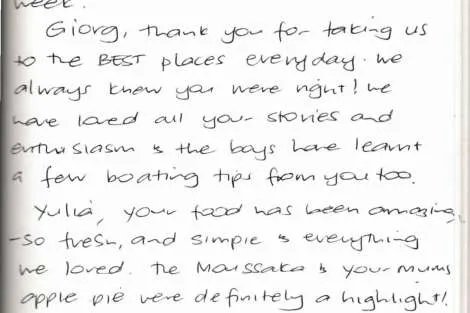 week.
Giorg, thank you for taking us
to the BEST places everyday. We
always knew you were right! We
have loved all your stories and
enthusiasm & the boys have learnt
a few boating tips from you too.
Yulia, your food has been amazing,
-so fresh, and simple & everything
we loved. The Moussaka & your mums
apple pie were definitely a highlight!